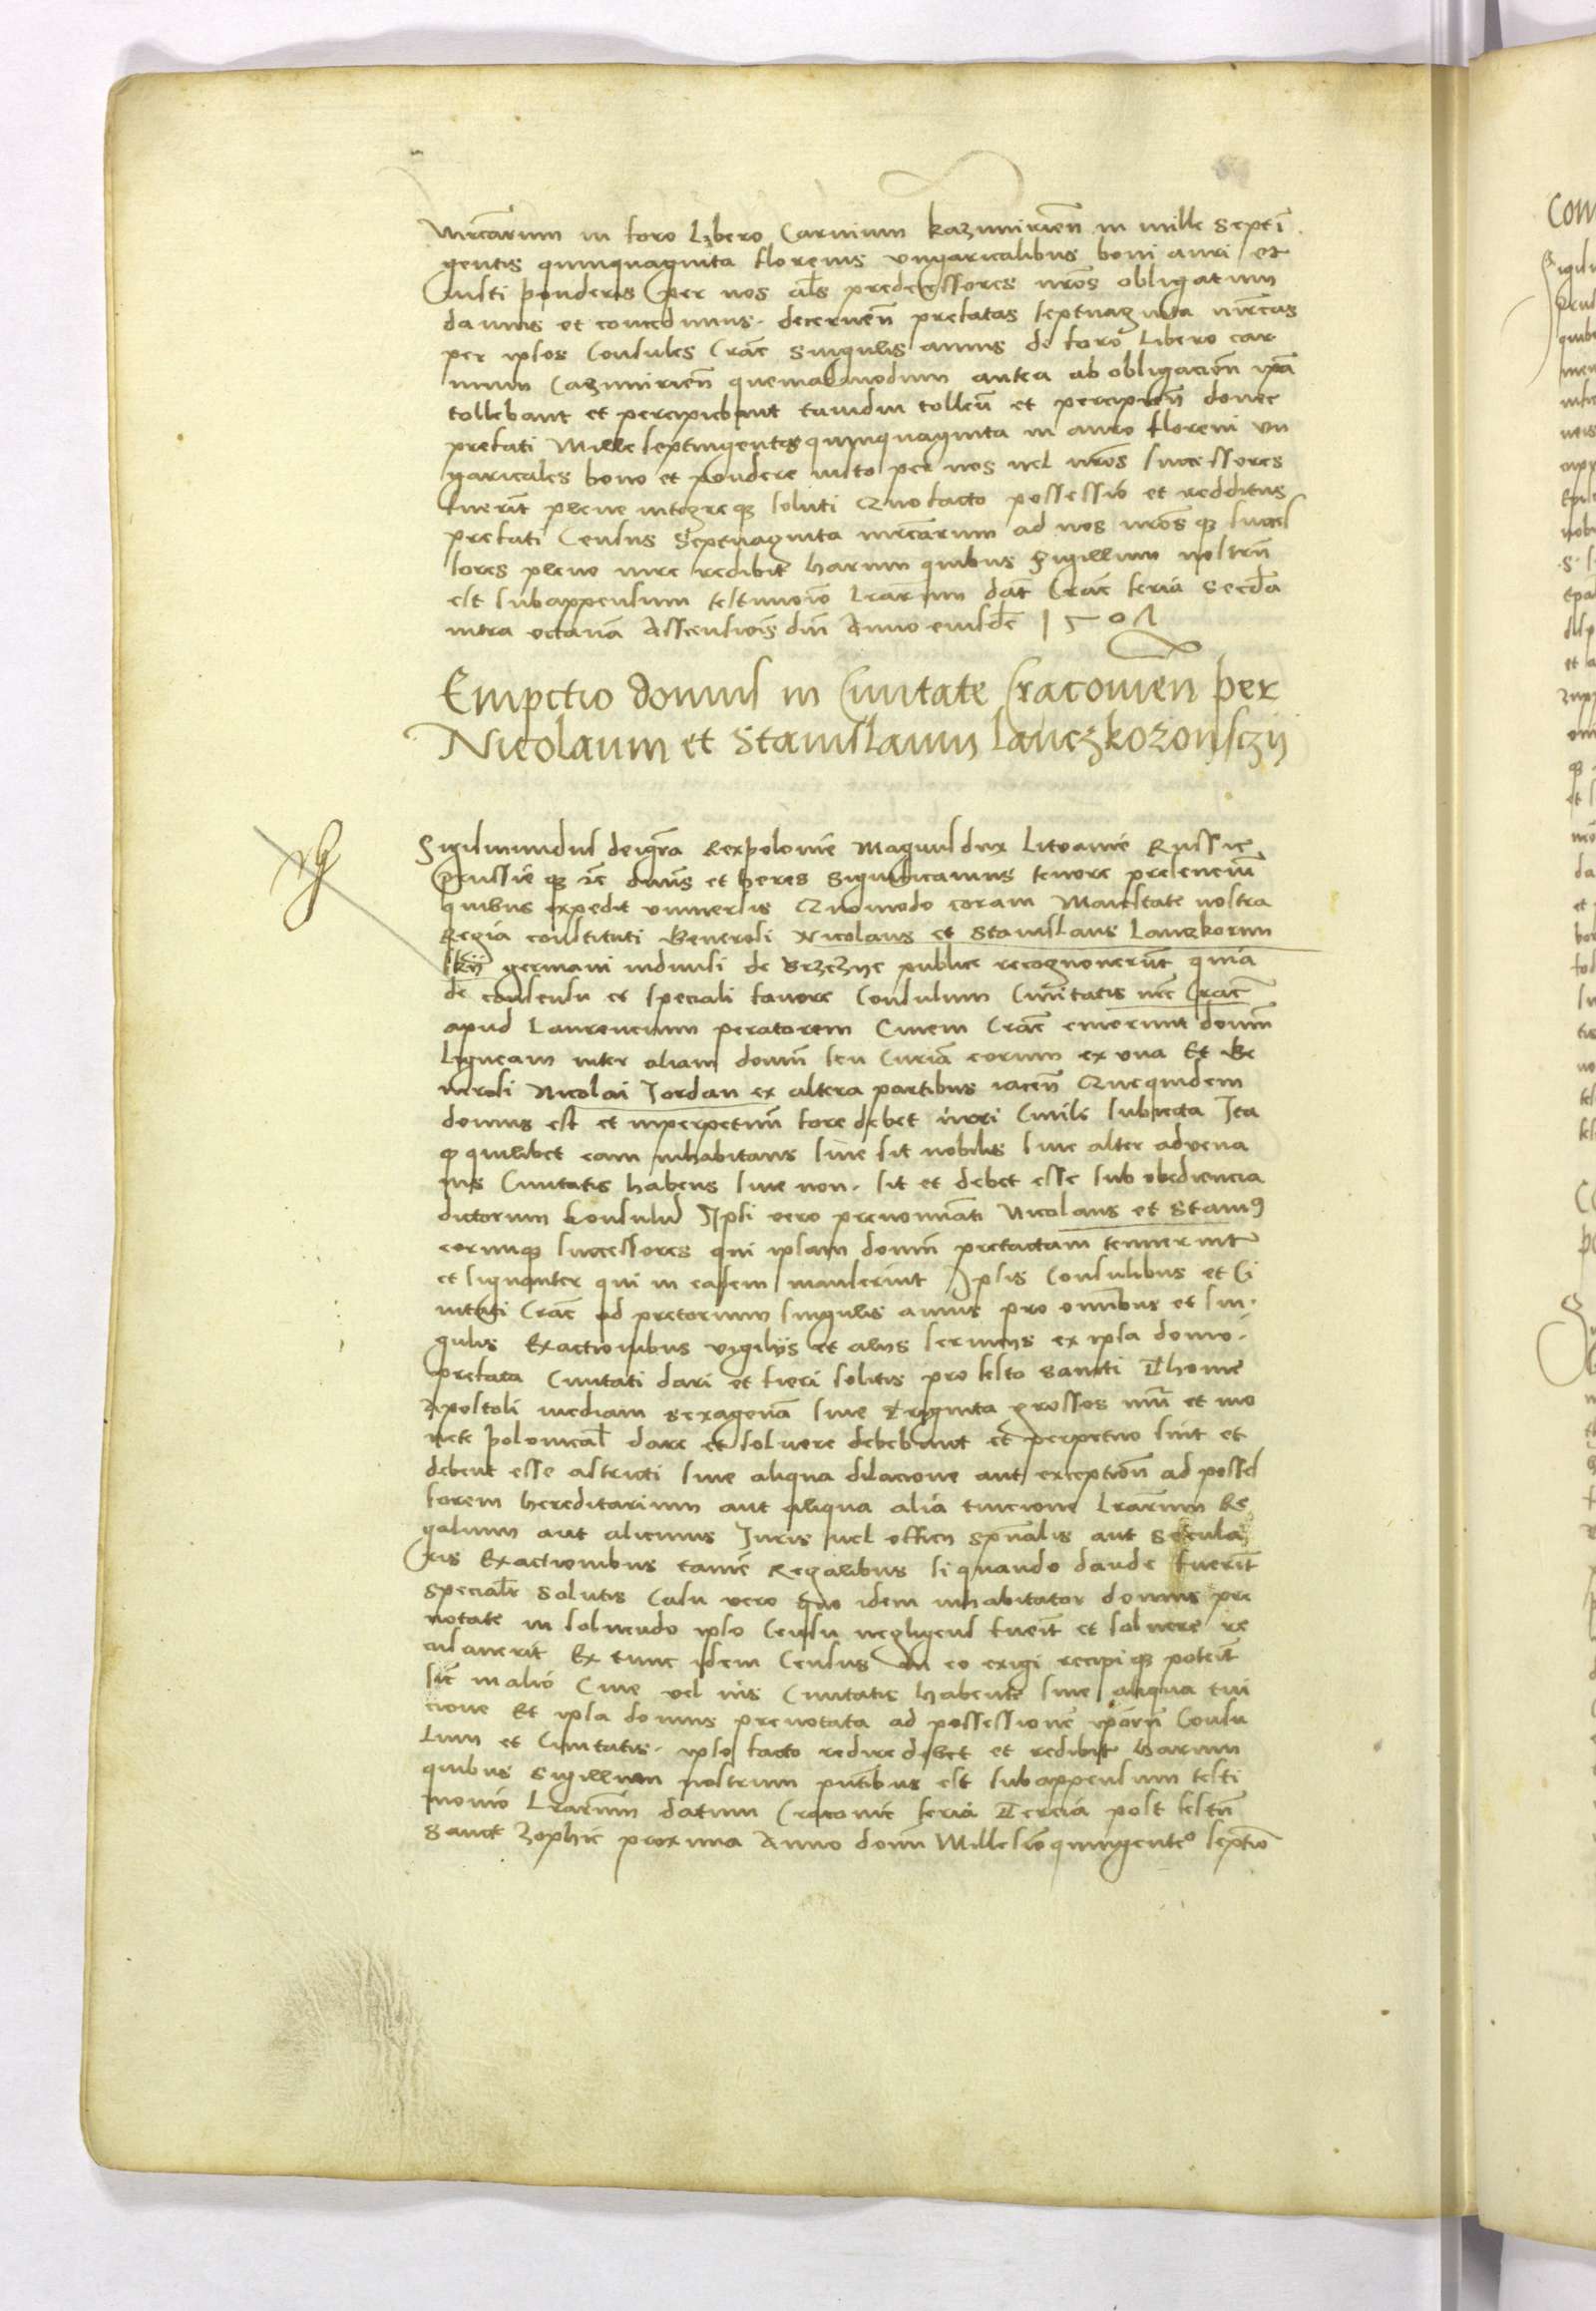 mrcarum in foro libero Carnium kazimirien̄ in mille septi
gentis quinquaginta florenis ungaricalibus boni auri et
iusti ponderis per nos al̄s predecessores nr̄os obligatum
damus et concedimus. decernen̄ prefatas septuaginta mrcas
per ipsos Consules Crac̄ singulis annis de foro libero car
nium Cazimirien̄ quemadmodum antea ab obligacion̄ ipa
tollebant et percipiebant tamdiu tollen̄ et percipien̄ donec
prefati Mille septingentes quinquaginta in auro floreni un
garicales bono et pondere iusto per nos uel nr̄os successores
fuerint plene integreq; soluti Quo facto possessio et redditus
prefati Census Septuaginta mrcarum ad nos nr̄osq; succes
sores pleno iure redibit harum quibus Sigillum nostrū
est subappensum testimonio lr̄arum dat̄ Crac̄ feria Secd̄a
intra octauā Assensiōis dn̄i Anno eiusdē 1507
Empctio domus in Ciuitate Cracouien̄ per
Nicolaum et Stanislaum Lanczkoronsczij
Sigismundus dei gr̄a Rex polonie Magnus dux Litvanie Russie
prussieq; zc̄ dn̄us et heres Significamus tenore presenciū
quibus expedit vniuersis Quomodo coram Maiestate nostra
Regia constituti Generosi Nicolaus et Stanislaus Lanczkorun
skij germani indiuisi de Brzezye publice recognouerūt quia
de consensu et speciali fauore Consulum Ciuitatis nr̄e Crac̄
apud Laurencium peratorem Ciuem Crac̄ emerunt domū
Ligneam inter aliam domū seu Curiā eorum ex vna Et Ge
nerosi Nicolai Jordan ex altera partibus iacen̄ Que quidem
domus est et inperpetuū fore debet iuri Ciuili subiecta Ita
q̄ quilibet eam inhabitans siue sit nobilis siue alter aduena
ius Ciuitatis habens siue non. sit et debet esse sub obediencia
dictorum Consulū Ipsi vero prenominati Nicolaus et Stanis
eorumq; successores qui ipsam domū prefactam tenuerint
et signanter qui in eadem manserint Ipsis Consulibus et Ci
uitati Crac̄ ad pretorium singulis annis pro omnibus et sin.
gulis Exactionibus vigilijs et alijs seruicijs ex ipsa domo.
prefata Ciuitati dari et fieri solitis pro festo Sancti Thome
Apostoli mediam sexagenā siue triginta grossos nūi et mo
nete polonical̄ dare et soluere debebunt et perpetuo sint et
debent esse astricti sine aliqua dilacione aut exception̄ ad posses
sorem hereditarium aut aliqua alia tuicione lr̄arum Re
galium aut alicuius Juris uel officij spūalis aut secula
ris Exactionibus tamē Regalibus si quando dande fuerint
specialr̄ Solutis Casu vero quo idem inhabitator domus pre
notate in soluendo ipso Censu negligens fuerit et soluere re
cusauerit Ex tunc idem Census in eo exigi recipiq; poterit
sic̄ in alio Ciue vel ius Ciuitatis habente sine aliqua tui
cione Et ipsa domus prenotata ad possessionē ipōrū Consu
lum et Ciuitatis. ipso facto redire debet et redibit harum
quibus Sigillum nostrum pn̄tibus est subappensum testi
monio lr̄arum datum Cracouie feria Tercia post festū
Sanct Zophie proxima Anno domī Millesio quingentes° septīo